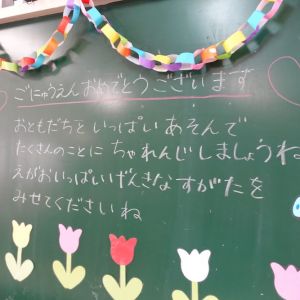 ごにゅうえんおめでとうございます
おともだちといっぱいあそんで
たくさんのことにちゃれんじしましょうね
えがおいっぱいげんきなすがたを
みせてくださいね